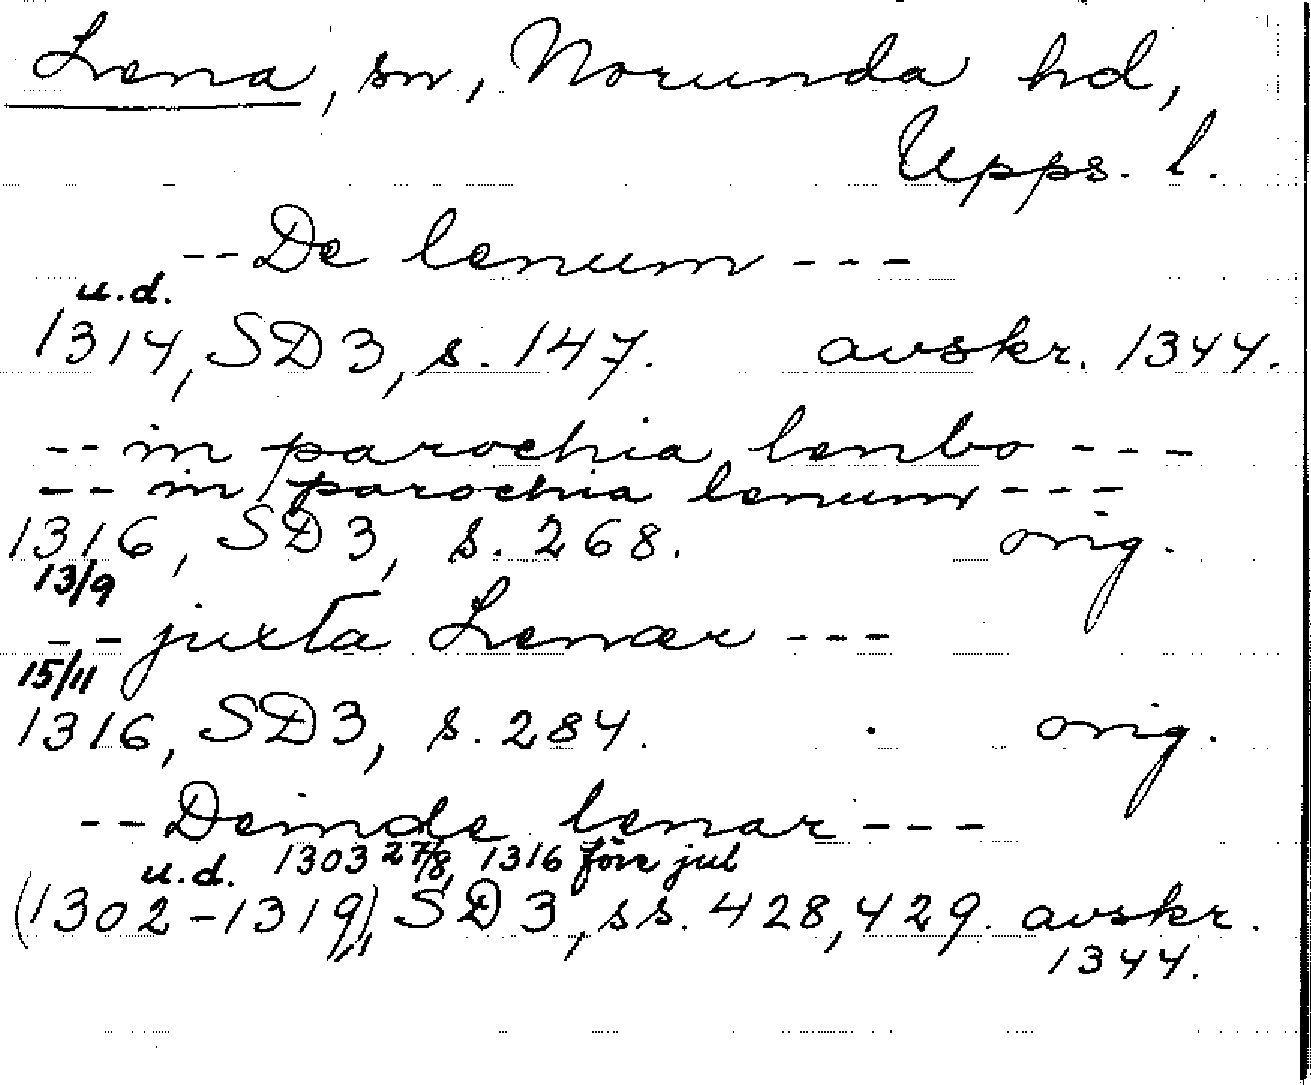 Lena, sn, Norunda hd,
Upps. l.
-- De lenum ---
u.d.
1314, SD 3, s. 147. avskr. 1344.
-- in parochia lenbo ---
-- in parochia lenum ---
1316, SD 3, s. 268. orig.
13/9
-- juxta Lenær ---
15/11
1316, SD 3, s. 284. orig.
-- Deinde lenar ---
u.d. 1303 27/8, 1316 före jul
(1302-1319), SD 3, ss. 428, 429. avskr.
1344.